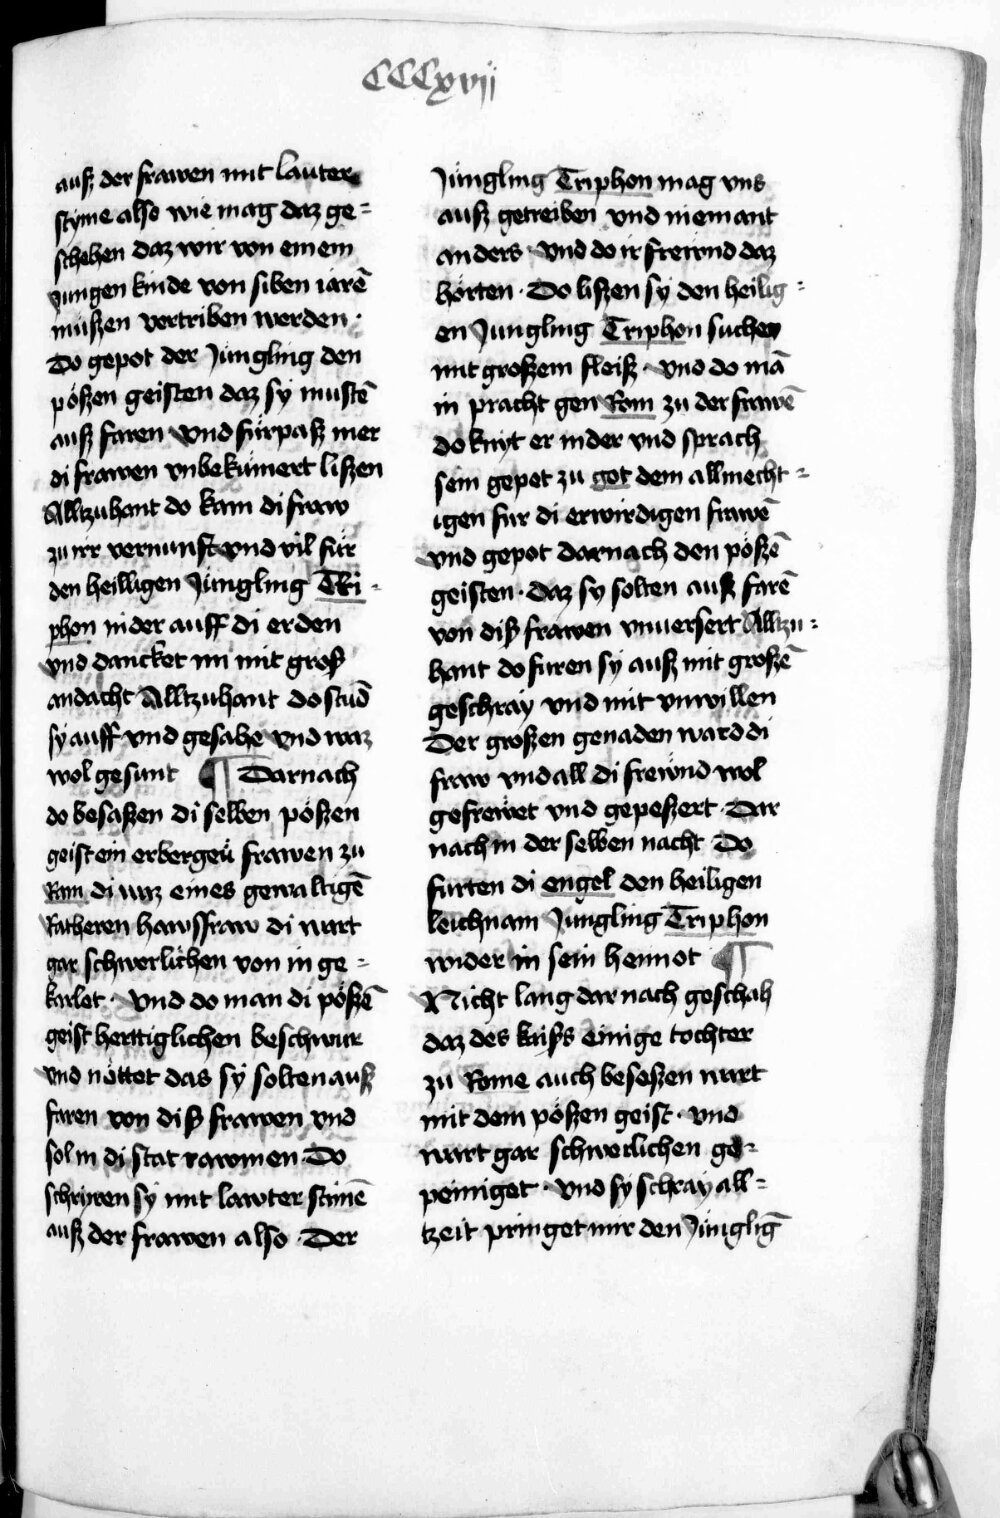 CCCxvij
auß der frawen mit lauter
styme also wie mag daz ge=
schehen daz wir von einem
jungen kinde von siben iarē
müßen vertriben werden ·
Do gepot der Jüngling den
pößen geisten daz sy mustē
auß faren vnd fürpaß mer
di frawen vnbekümert lißen
Alltzuhant do kam di fraw
zu irr vernunft vnd vil für
den heilligen Jüngling Tri=
phon nider auff di erden
vnd dancket im mit groß
andacht Alltzuhant do stūd
sy auff vnd gesahe vnd waz
wol gesunt ¶ Darnach
do besaßen di selben pößen
geist ein erbergeü frawen zu
Rom di waz eines gewaltigē
Ratheren hawsfraw di wart
gar schwerlichen von in ge=
karlet · vnd do man di pößē
geist herttiglichen beschwur
vnd nöttet das sy solten auß
faren von diß frawen vnd
soln di stat rawmen Do
schrywen sy mit lawter stimē
auß der frawen also · Der
Jüngling Triphon mag vns
auß getreiben vnd niemant
anders · vnd do ir frewnd daz
hörten · Do lißen sy den heilig=
en Jungling Triphon suchen
mit großem fleiß · vnd do mā
in pracht gen Rom zu der frawē
do knyt er nider vnd sprach
sein gepet zu got dem allmecht=
igen für di erwirdigen frawē
vnd gepot darnach den pößē
geisten · daz sy solten auß farē
von diß frawen vnuersert Alltzu=
hant do furen sy auß mit großē
geschray vnd mit vnwillen
Der großen genaden ward di
fraw vnd all di frewnd wol
gefrewet vnd gepeßert · Dar
nach in der selben nacht Do
fürten di engel den heiligen
leichnam Jungling Triphon
wider in sein heimot ¶
Nicht lang dar nach geschah
daz des keißs einige tochter
zu Rome auch beseßen wart
mit dem pößen geist · vnd
wart gar schwerlichen ge=
peiniget · vnd sy schray all=
tzeit pringet mir den Jünglīg